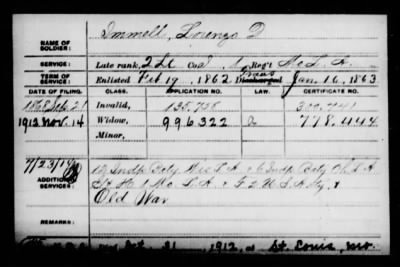 NAME OF SOLDIER: Immell, Lorenzo D
SERVICE: Late rank, 2 Lt Co. 1 Reg't Mo L. A.
TERM OF SERVICE: Enlisted Feb 19, 1862 Discharged Trans Jan. 16, 1863
DATE OF FILING. CLASS. APPLICATION NO. CERTIFICATE NO.
1868 Sep. 21 Invalid, 135.758 300.741
1912 Nov. 14 Widow, 996322 778.444
Minor,
7/23/14
ADDITIONAL SERVICES: 12 Indp. Bat'y Wis L A & 6 Indp Bat'y L A
1 Mo L. A. & F 2 U. S. A
Old War
REMARKS:
Oct. 31, 1912, at St. Louis, Mo.